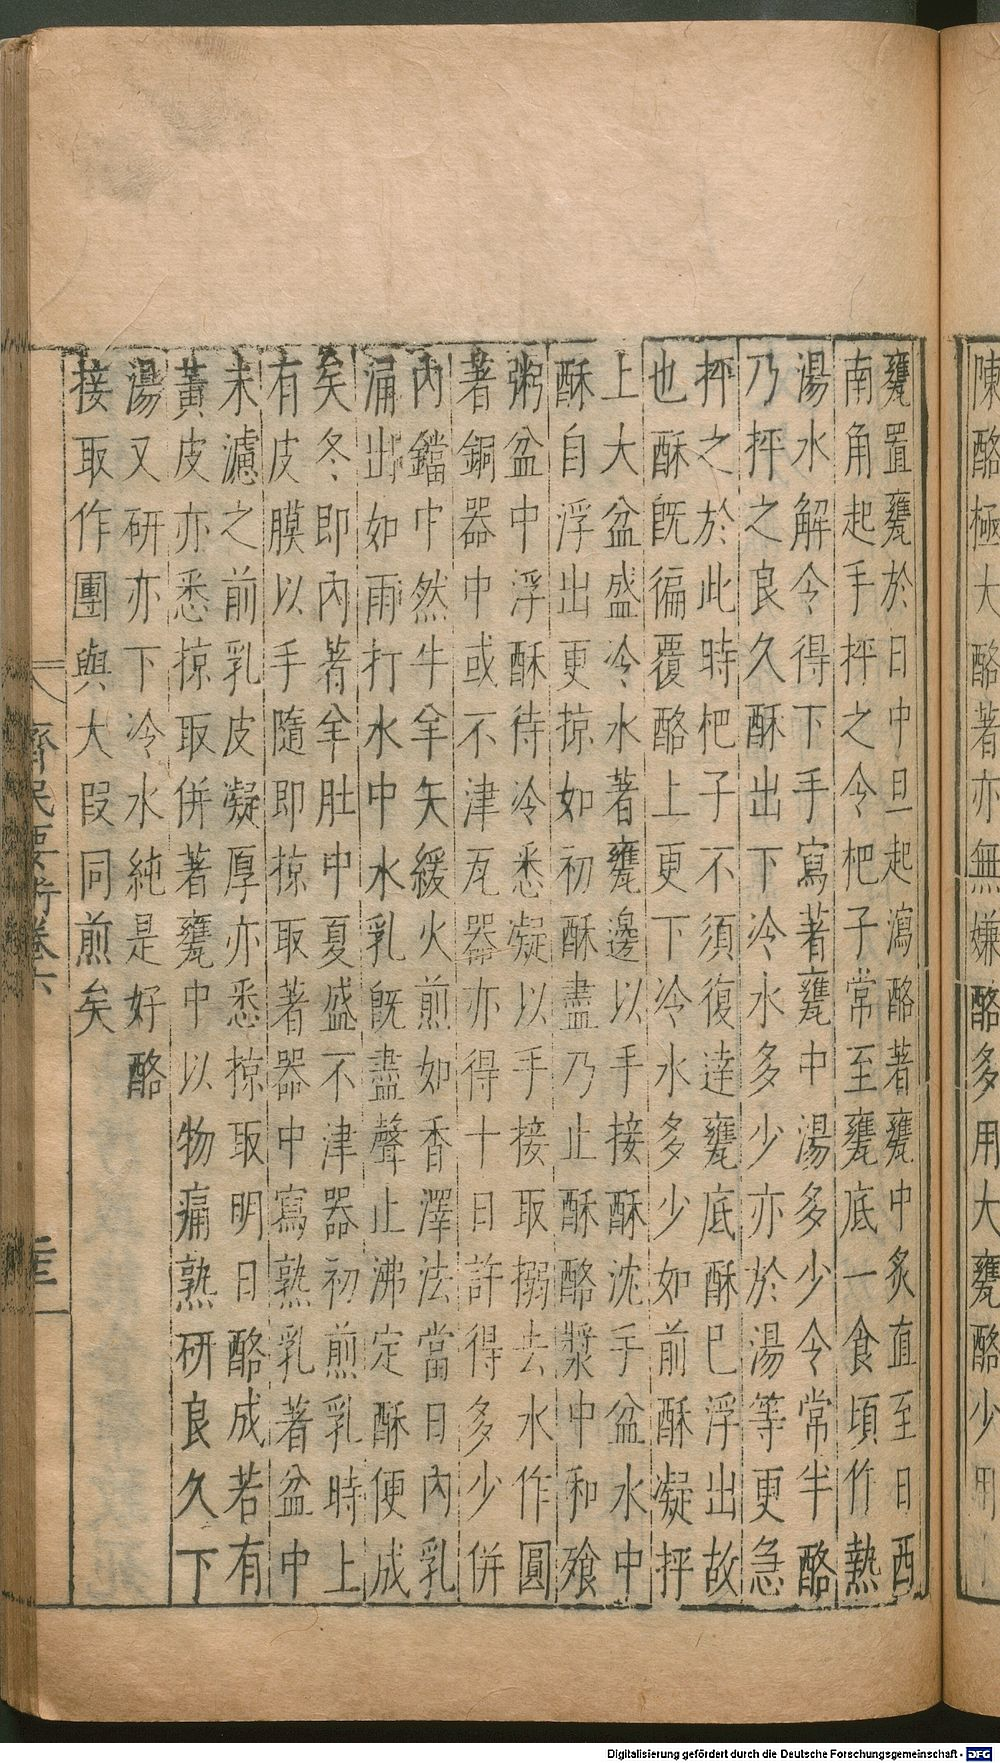 陳酪極大酪著亦無嫌酪多用大甕酪少用
甕置甕於日中旦起瀉酪著甕中炙直至日西
南角起手抨之令杷子常至甕底一食頃作熱
湯水解令得下手寫著甕中湯多少令常半酪
乃抨之良久酥出下冷水多少亦於湯等更急
抨之於此時杷子不須復達甕底酥巳浮出故
也酥旣徧覆酪上更下冷水多少如前酥凝抨
上大盆盛冷水著甕邊以手接酥沈手盆水中
酥自浮出更掠如初酥盡乃止酥酪漿中和飱
粥盆中浮酥待冷悉凝以手接取搦去水作圓
著銅器中或不津瓦器亦得十日許得多少併
內鐺中然牛羊矢緩火煎如香澤法當日內乳
涌出如雨打水中水乳旣盡聲止沸定酥便成
矣冬即內著羊肚中夏盛不津器初煎乳時上
有皮膜以手隨即掠取著器中寫熟乳著盆中
未濾之前乳皮凝厚亦悉掠取明日酪成若有
黃皮亦悉掠取併著甕中以物痛熟研良久下
湯又研亦下冷水純是好酪
接取作團與大段同煎矣
齊民要術卷六
Digitalisierung gefördert durch die Deutsche Forschungsgemeinschaft - DFG